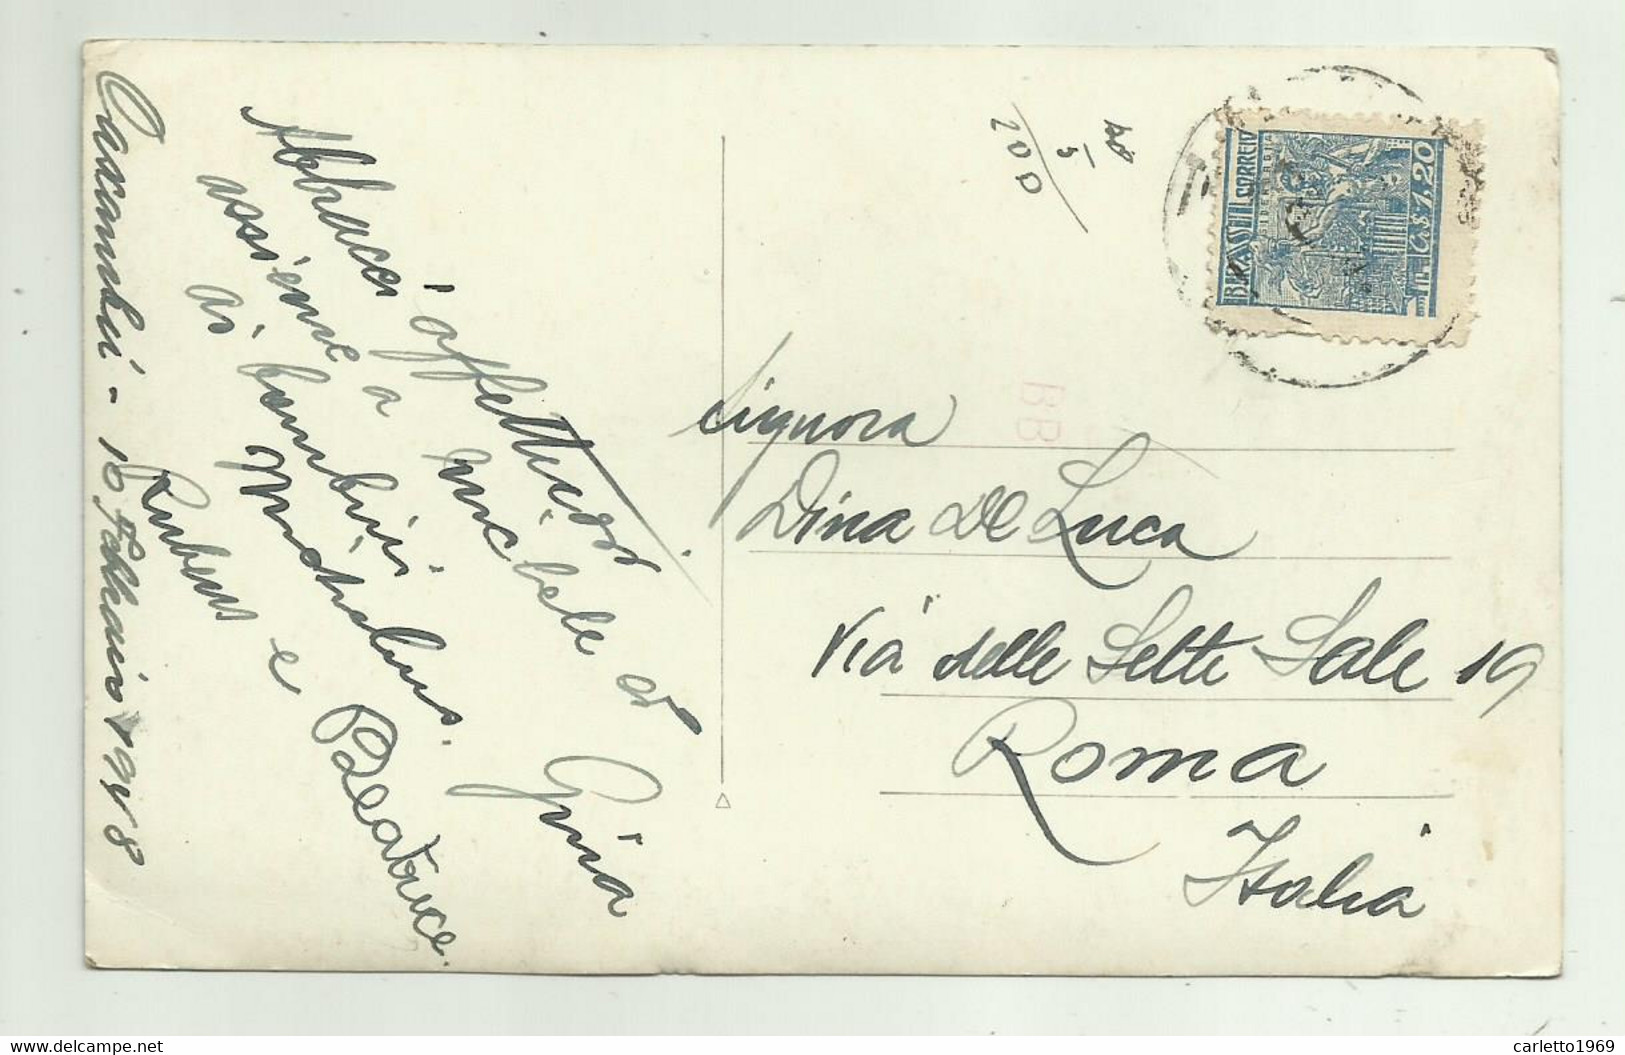 Caxambù - 16 Febbraio 1948
Abbracci affettuosi
assieme a Michele e
ai bambini.
Gina
Rubens e Beatrice.
Signora
Dina De Luca
Via delle Sette Sale 19
Roma
Italia
BRASIL CORREIO
Cr$ 1,20
20D
5
BB
www.delcampe.net
carletto1969